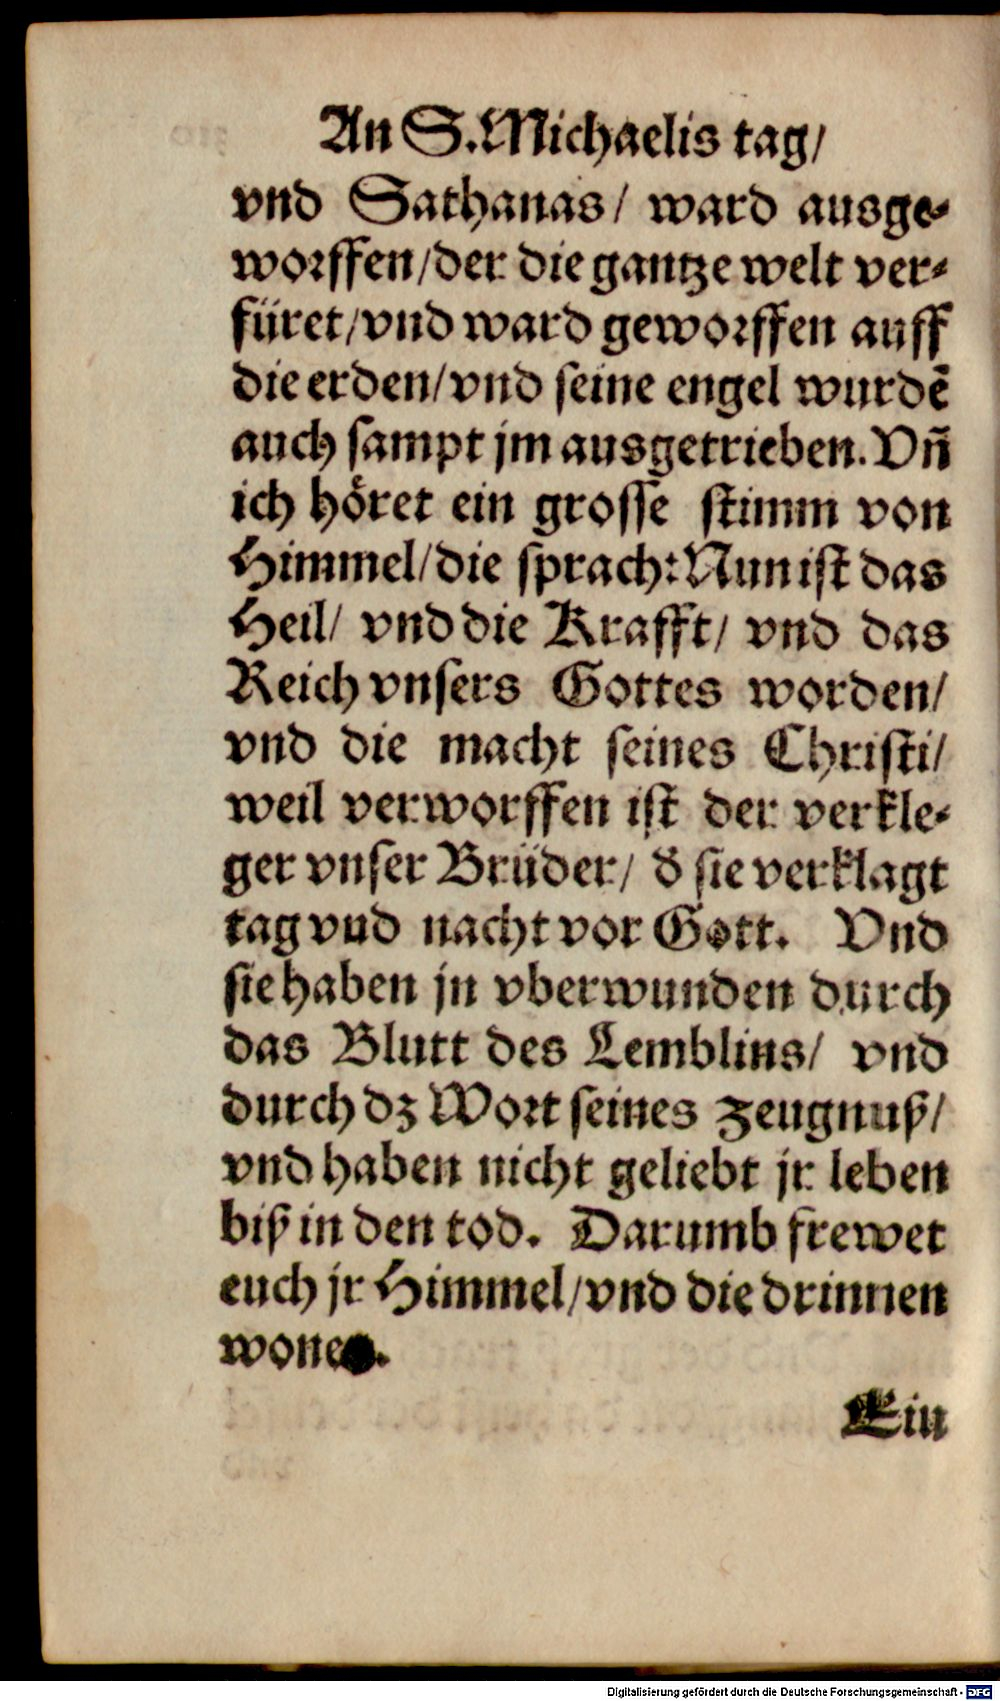 An S. Michaelis tag/
vnd Sathanas/ ward ausge-
worffen/der die gantze welt ver-
füret/vnd ward geworffen auff
die erden/vnd seine engel wurdē
auch sampt jm ausgetrieben. Vñ
ich höret ein grosse stimm von
Himmel/die sprach: Nun ist das
Heil/ vnd die Krafft/ vnd das
Reich vnsers Gottes worden/
vnd die macht seines Christi/
weil verworffen ist der verkle-
ger vnser Brüder/ d̄ sie verklagt
tag vnd nacht vor Gott. Vnd
sie haben jn vberwunden durch
das Blutt des Lemblins/ vnd
durch dz Wort seines zeugnuß/
vnd haben nicht geliebt jr leben
biß in den tod. Darumb frewet
euch jr Himmel/vnd die drinnen
wonen.
Ein
Digitalisierung gefördert durch die Deutsche Forschungsgemeinschaft - DFG